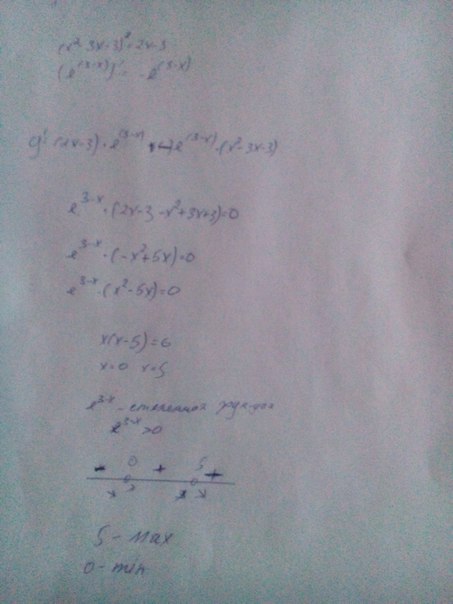 (x²-3x-3)'=2x-3
(e^(3-x))' = -e^(3-x)
y' (2x-3)·e^(3-x) + (-)e^(3-x)·(x²-3x-3)
e^3-x·(2x-3-x²+3x+3)=0
e^3-x·(-x²+5x)=0
e^3-x·(x²-5x)=0
x(x-5)=0
x=0 x=5
e^3-x - степенная функция
e^3-x>0
- 0 + 5 +
5 - max
0 - min